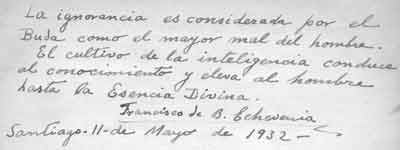 La ignorancia es considerada por el
Buda como el mayor mal del hombre.
El cultivo de la inteligencia conduce
al conocimiento y eleva al hombre
hasta la Esencia Divina.
Francisco de B. Echeverria
Santiago-11-de Mayo de 1932-